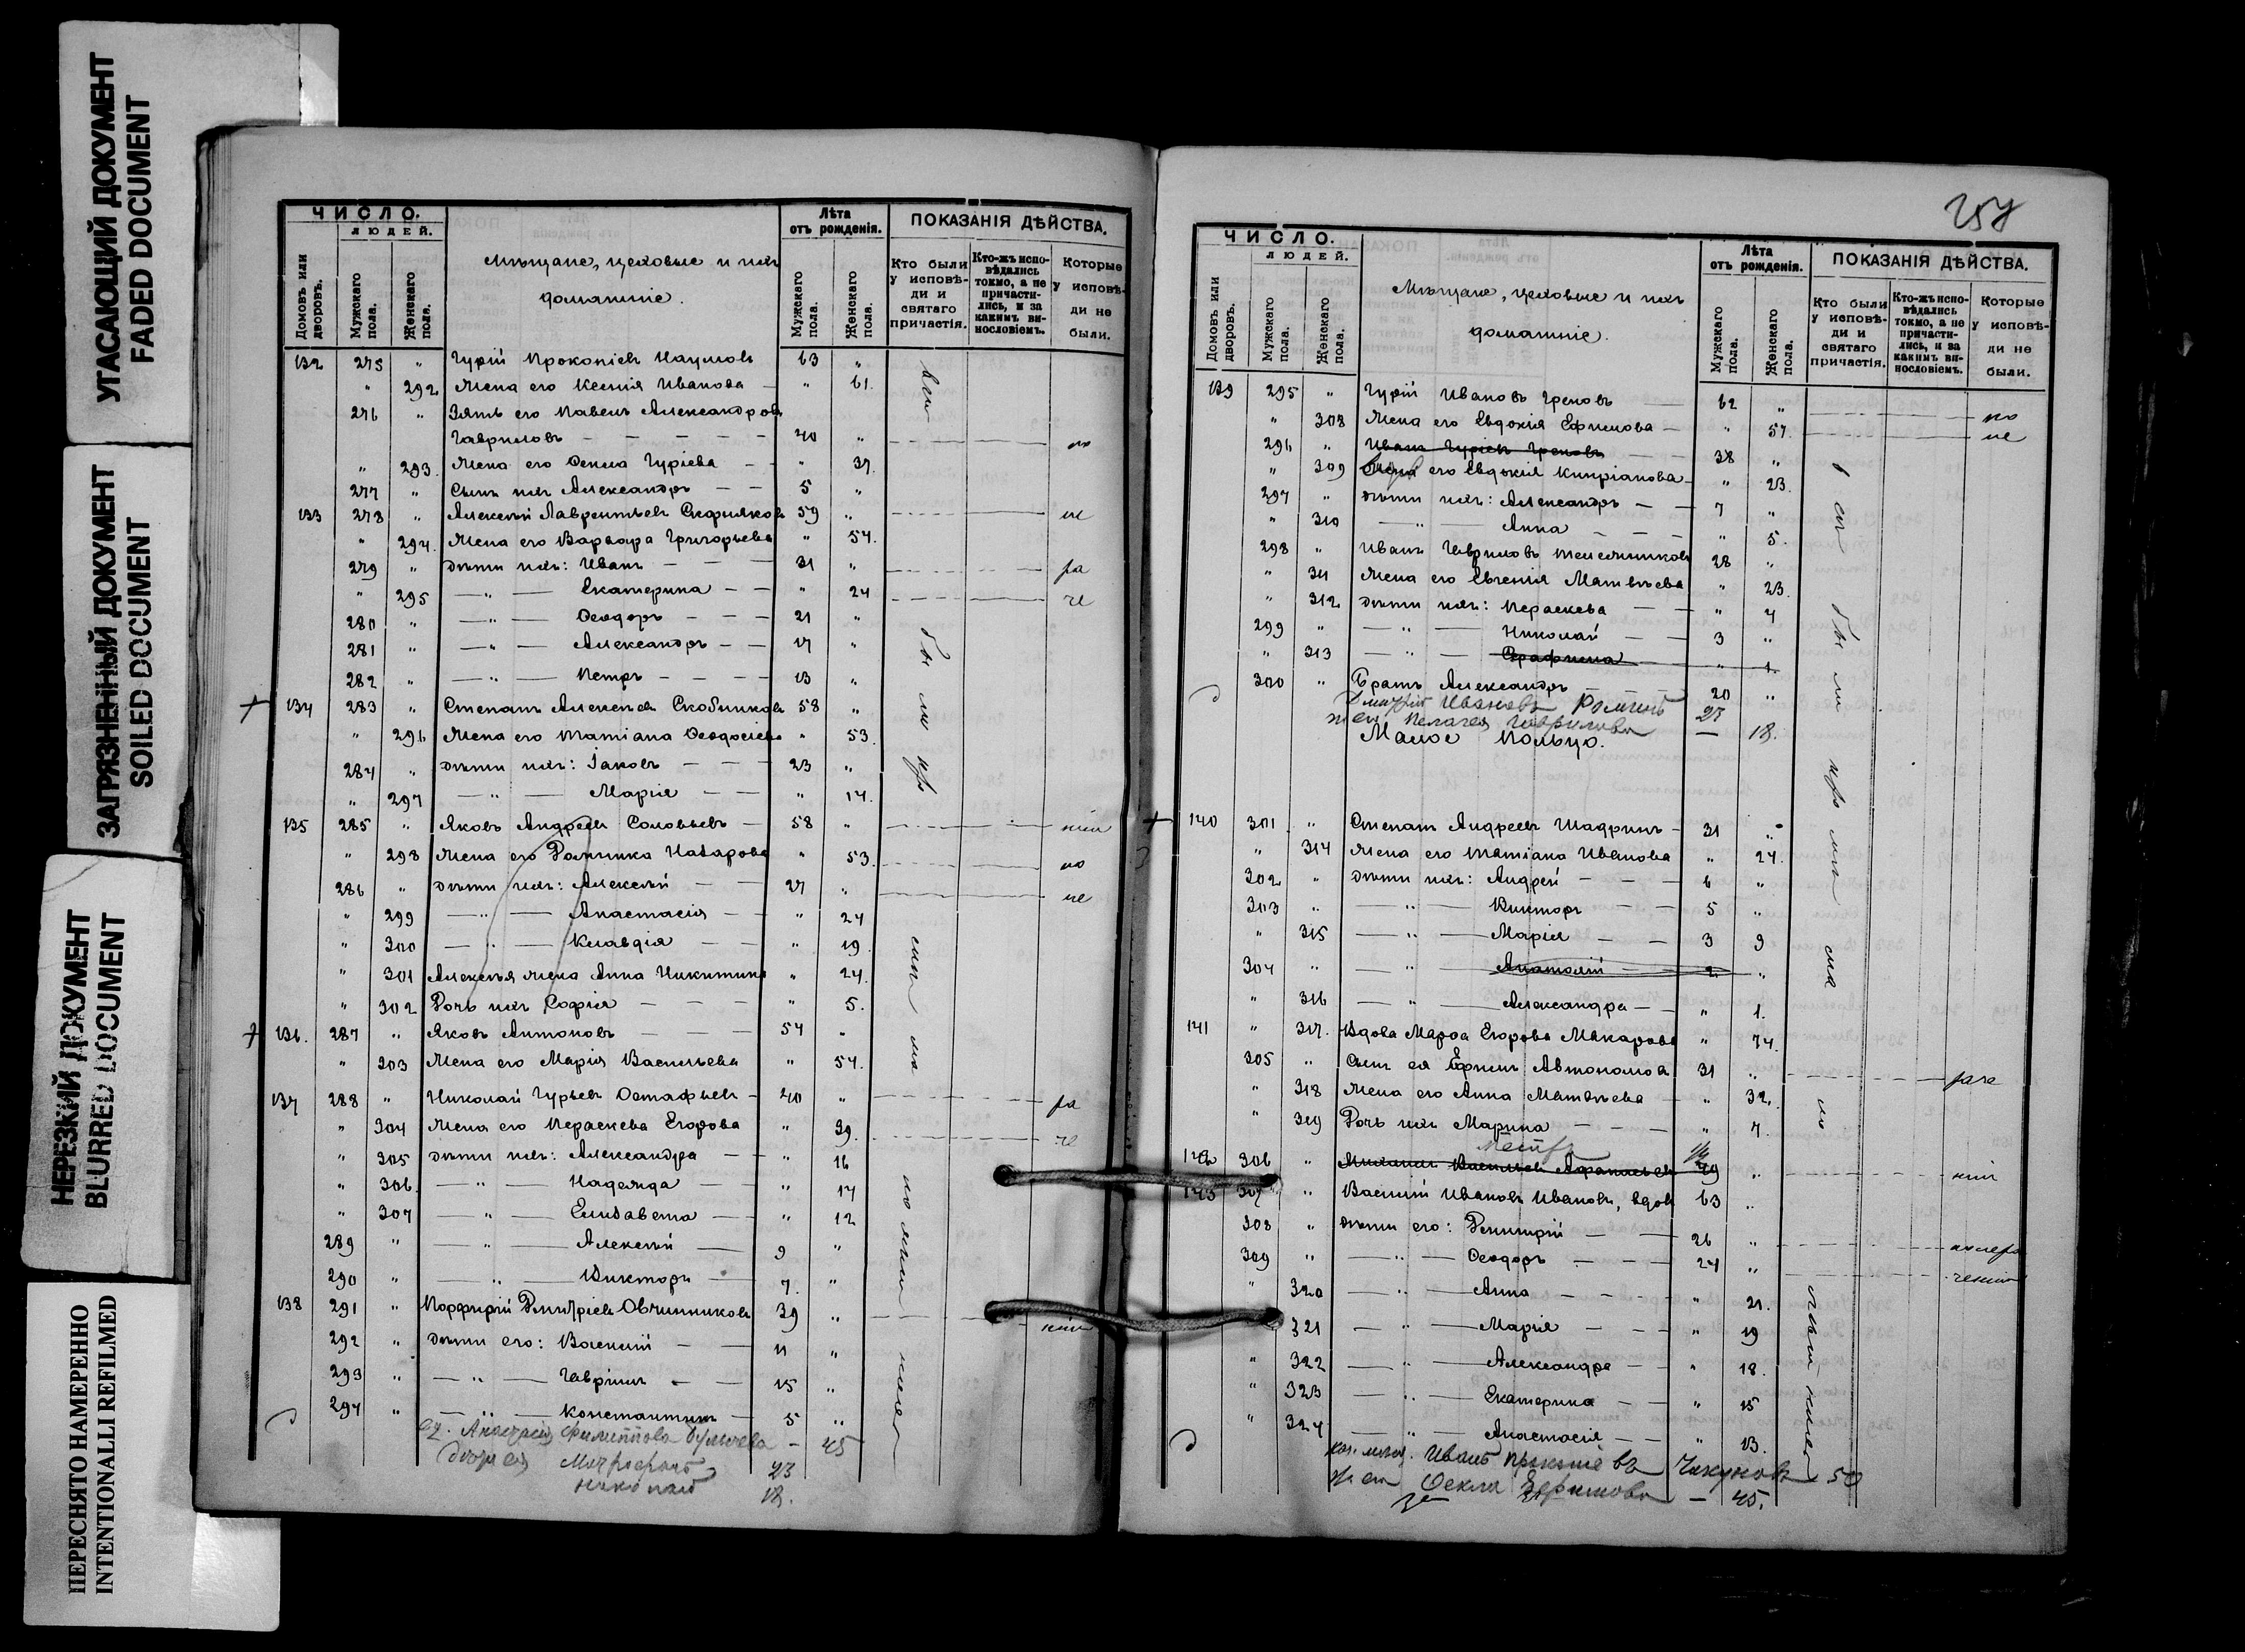 УГАСАЮЩИЙ ДОКУМЕНТ
FADED DOCUMENT
ЗАГРЯЗНЕННЫЙ ДОКУМЕНТ
SOILED DOCUMENT
НЕРЕЗКИЙ ДОКУМЕНТ
BLURRED DOCUMENT
ПЕРЕСНЯТО НАМЕРЕННО
INTENTIONALLI REFILMED
ЧИСЛО.
ЛЮДЕЙ.
Домовъ или дворовъ.
Мужскаго пола.
Женскаго пола.
Мѣщане, цеховые и ихъ
домашніе.
Лѣта
отъ рожденія.
Мужскаго пола.
Женскаго пола.
ПОКАЗАНІЯ ДѢЙСТВА.
Кто были у исповѣди и святаго причастія.
Кто-жъ исповѣдались токмо, а не причастились, и за какимъ винословіемъ.
Которые у исповѣди не были.
132 275 " Гурій Прокопіевъ Наумовъ 63 "
" 292 Жена его Ксенія Иванова — " 61.
276 " Зять его Павелъ Александровъ
Гавриловъ — — — — — 40 " по
" 293. Жена его Ѳекла Гуріева — — " 37.
277 " Сынъ ихъ Александръ — — 5 "
133 278 " Алексѣй Лаврентьевъ 59 " не
" 294. Жена его Варвара Григорьева " 54.
279 " Дѣти ихъ: Иванъ — — — 31 " ра
" 295 — " — Екатерина — — " 24 че
280 " — " — Ѳеодоръ — — — 21 "
281 " — " — Александръ — — 17 "
282 " — " — Петръ — — — — 13 "
134 283 " Степанъ Алексѣевъ Скобниковъ 58 "
" 296 Жена его Татіана Ѳеодосіева " 53.
284 " Дѣти ихъ: Іаковъ — — — 23 "
" 297 — " — Марія — — " 17.
135 285 " Яковъ Андреевъ Соловьевъ — 58 " нію
" 298 Жена его Домника Назарова " 53. по
286 " Дѣти ихъ: Алексѣй — — 27 " не
" 299 — " — Анастасія — — " 24
" 300 — " — Клавдія — — " 19.
" 301 Алексѣя жена Анна Никитина " 24.
" 302 Дочь ихъ Софія — — — " 5.
136. 287 " Яковъ Антоновъ — — — 54 "
" 303 Жена его Марія Васильева " 54.
137 288 " Николай Гурьевъ Остафьевъ — 40 " ра
" 304 Жена его Параскева Егорова " 39. че
" 305 Дѣти ихъ: Александра — — " 16
" 306. — " — Надежда — — " 14
" 307 — " — Елизавета — — " 12
289 " — " — Алексѣй — — 9 "
290 " — " — Викторъ — 7. "
138 291 " Порфирій Димитріевъ Овчинниковъ 39 " нію
292 " Дѣти его: Василій — — 11 "
293 " — " — Гавріилъ — — 15 "
294 " — " — Константинъ — 5 "
Анастасія Филиппова — 45
дѣти ея Митрофанъ 23
Николай 18.
257
ЧИСЛО.
ЛЮДЕЙ.
Домовъ или дворовъ.
Мужскаго пола.
Женскаго пола.
Мѣщане, цеховые и ихъ
домашніе.
Лѣта
отъ рожденія.
Мужскаго пола.
Женскаго пола.
ПОКАЗАНІЯ ДѢЙСТВА.
Кто были у исповѣди и святаго причастія.
Кто-жъ исповѣдались токмо, а не причастились, и за какимъ винословіемъ.
Которые у исповѣди не были.
139 295 " Гурій Ивановъ Грековъ — 62 " по
" 308 Жена его Евдокія Ефимова — " 57. не
296 " Иванъ Гуріевъ Грековъ — — 38 "
" 309 его Евдокія Кипріанова — " 23.
297 " Дѣти ихъ: Александръ — — 7 "
" 310 — " — Анна — — — " 5.
298 " Иванъ Гавриловъ 28 "
" 311 Жена его Евгенія Матвѣева " 23.
" 312 Дѣти ихъ: Параскева — — " 4
299 " — " — Николай — — 3 "
" 313 — " — Серафима — " 1.
300 " Братъ Александръ — 20 "
Дмитрій Ивановъ 27
жена Пелагея Гаврилова — 18.
Малое Кольцо.
140 301 " Степанъ Андреевъ Шадринъ — 31 "
" 314 Жена его Татіана Иванова " 24.
302 " Дѣти ихъ: Андрей — — — 6 "
303 " — " — Викторъ — — 5 "
" 315 — " — Марія — — 3 9
304 " — " — Анатолій — 2 "
" 316 — " — Александра — — " 1.
141 " 317. Вдова Марѳа Егорова Макарова " 74.
305 " Сынъ ея Ефимъ Автономовъ 31 " раче
" 318 Жена его Анна Матвѣева — " 32.
" 319 Дочь ихъ Марина — — — " 7.
142 306 " Михаилъ Васильевъ Афанасьевъ 49 " нію
143 307 " Василій Ивановъ Ивановъ, вдов 63 "
308 " Дѣти его: Димитрій — — 26 "
309 " — " — Ѳеодоръ — — — 24 "
" 320 — " — Анна — — — " 21.
321 — " — Марія — — — " 19
" 322 — " — Александра — — " 18.
" 323 — " — Екатерина — — " 15
" 324 — " — Анастасія — — " 13.
Иванъ Чикуновъ 50
жена Ѳекла Ефимова — 45.